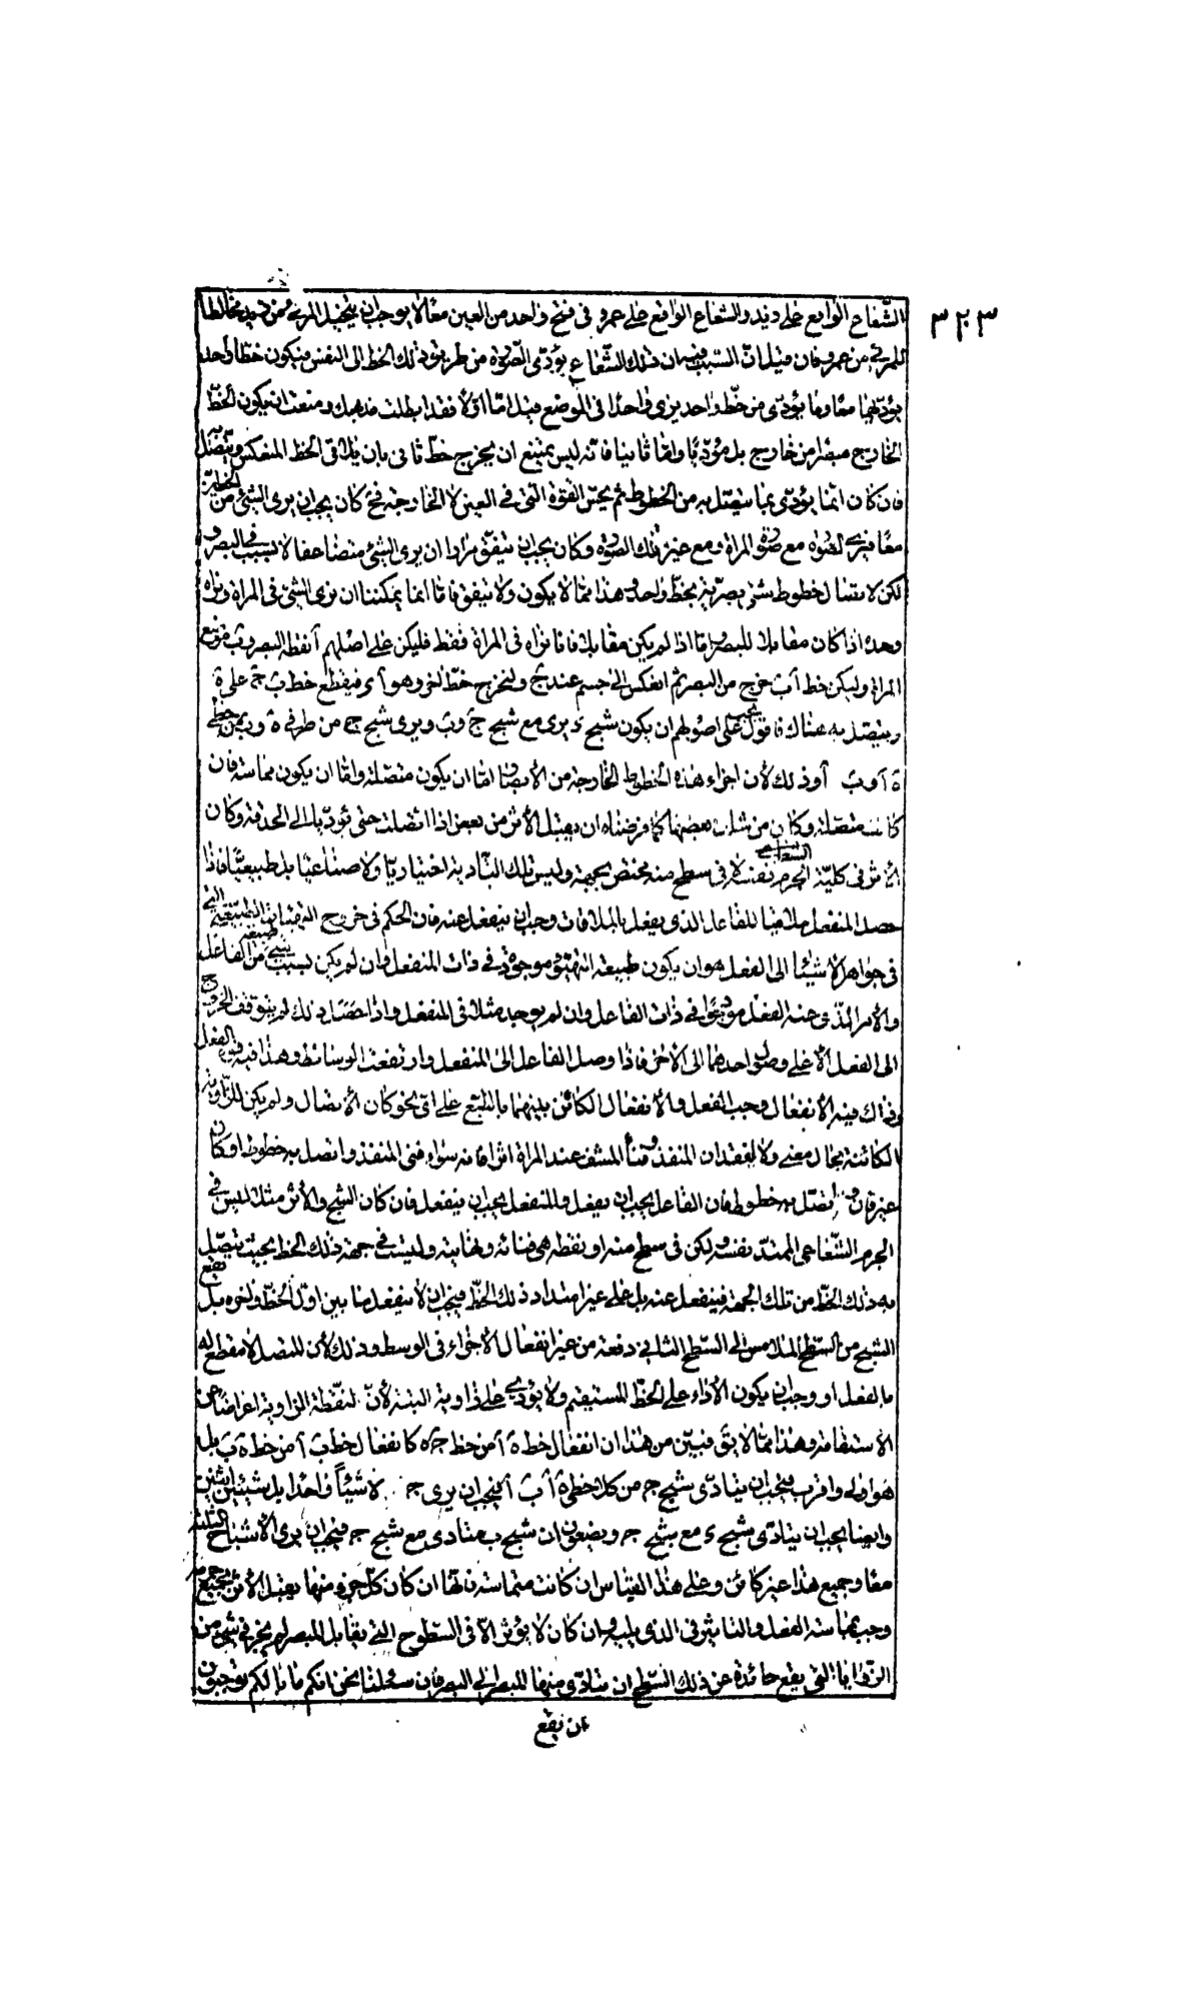 ٣٢٣
الشعاع الواقع على زيد والشعاع الواقع على عمرو فى فتح واحد من العين معا لا يوجب ان يتخيل المرئى من زيد مخالطا
للمرئى من عمرو فان قيل ان السبب فيه ان ذلك الشعاع يؤدى الصورة من طريق ذلك الخط الى النفس فيكون خطا واحد
يؤديهما معا وما يؤدى من خط واحد يرى واحدا فى الموضع قيل اما اولا فقد ابطلت مذهبك ومنعت ان يكون الخط
الخارج مبصرا من خارج بل مؤديا واما ثانيا فانه ليس يمتنع ان يخرج خط ثانى بان يلاقى الخط المنعكس ويتصل به
فان كان انما يؤدى بما يتصل به من الخطوط ثم يحس القوة التى فى العين لا الخارجة فح كان يجب ان يرى الشئ من الخطين
معا فيرى الصورة مع صورة المرآة ومع غير تلك الصورة وكان يجب ان يتفق مرارا ان يرى الشئ متضاعفا لا بسبب فى البصر و
لكن لاتصال خطوط شتى بصرية بخط واحد وهذا مما لا يكون ولا يتفق فانا انما يمكننا ان نرى الشئ فى المرآة ونراه
وحده اذا كان مقابلا للبصر واما اذا لم يكن مقابلا فانا نراه فى المرآة فقط فليكن على اصلهم آ نقطة البصر وب موضع
المرآة وليكن خط آب خرج من البصر ثم انعكس الى جسم عند ج وليخرج خط اخر وهو آء فيقطع خط ب ج على ه
ويتصل به هناك فاقول يجب على اصولهم ان يكون شبح ء يرى مع شبح ج و ب ويرى شبح ج من طرفى ه و ب من خطى
ه آ و ب آ وذلك لان اجزاء هذه الخطوط الخارجة من الابصار اما ان يكون متصلة واما ان يكون مماسة فان
كانت متصلة وكان من شان بعضها كما فرضناه ان يقبل الاثر من بعض اذا اتصلت حتى تؤدى الى الحدقة وكان
الاثر فى كلية الجرم الشعاعى نفسه لا فى سطح منه مختص بجهة وليس تلك التادية اختياريا ولا صناعيا بل طبيعيا فاذا
حصل المنفعل ملاقيا للفاعل الذى يفعل بالملاقات وجب ان ينفعل عنه فان الحكم فى خروج التهيئات الطبيعية التى
فى جواهر الاشياء الى الفعل هو ان يكون طبيعة التهيؤ موجودة فى ذات المنفعل وان لم يكن بسبب شئ من طبيعة الفاعل
والامر الذى عنه الفعل موجودا فى ذات الفاعل وان لم يوجد مثله فى المنفعل واذا حصل ذلك لم يتوقف الخروج
الى الفعل الا على وصول احدهما الى الاخر فاذا وصل الفاعل الى المنفعل وارتفعت الوسائط وهذا فيه قوة الفعل
وذاك فيه الانفعال وجب الفعل والانفعال الكائن بينهما بالطبع على اى نحو كان الاتصال ولم يكن للزاوية
الكائنة بحال معنى ولا لفقدان المنفذ وفناء المشف عند المرآة اثر فانه سواء فنى المنفذ واتصل به خطوط او كان
غير فان واتصل به خطوط فان الفاعل يجب ان يفعل والمنفعل يجب ان ينفعل فان كان الشبح والاثر مثلا ليس فى
الجرم الشعاعى الممتد نفسه ولكن فى سطح منه او نقطة هى فنائه ونهايته وليست فى جهة ذلك الخط بحيث يتصل
به ذلك الخط من تلك الجهة فينفعل عنه بل على غير امتداد ذلك الخط فيجب ان لا ينفعل ما بين اول الخط واخره بل يقع
الشبح من السطح الملامس الى السطح الثانى دفعة من غير انفعال الاجزاء فى الوسط وذلك لان المتصل لا مقطع له
بالفعل او وجب ان يكون الاداء على الخط المستقيم ولا يؤدى على زاوية البتة لان لنقطة الزاوية اعراضا عن
الاستقامة وهذا مما لا يق فبين من هذا ان انفعال خط ه آ من خط ج ه كانفعال خط ب آ من خط ه ب بل
هو اولى واقرب فيجب ان يتادى شبح ج من كلا خطى ه آ ب آ فيجب ان يرى ج لا شيئا واحدا بل شيئين اثنين
وايضا يجب ان يتادى شبح ء مع شبح ج ويضعون ان شبح ب متادى مع شبح ج فيجب ان يرى الاشباح الثلثة
معا وجميع هذا غير كائن وعلى هذا القياس ان كانت متماسة فانها ان كان كل جزء منها يقبل الاثر بجميع جرمه
وجب بمماسته الفعل والتاثير فى الذى يليه وان كان لا يؤثر الا فى السطوح التى يقابل المبصر لم يجز فى شئ من
الزوايا التى يقع حائدة عن ذلك السطح ان يتادى منها المبصر الى البصر فان سئلنا نحن انكم ما بالكم توجبون
ان يقع